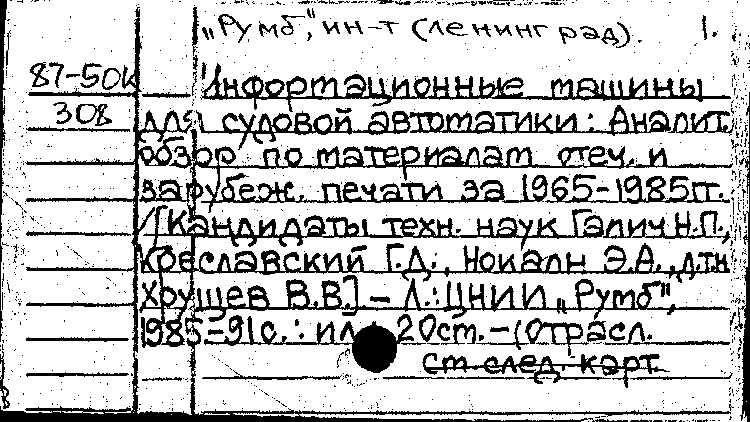 „Румб", ин-т (Ленинград). 1.
87-50к Информационные машины
308 для судовой автоматики: Аналит.
обзор по материалам отеч. и
зарубеж. печати за 1965-1985гг.
/[Кандидаты техн. наук Галич Н.П.,
Креславский Г.Д., Нокалн Э.А., д.т.н
Хрущев В.В.] - Л.: ЦНИИ „Румб",
1985-91с.: ил. 20см.-(Отрасл.
См.след. карт.